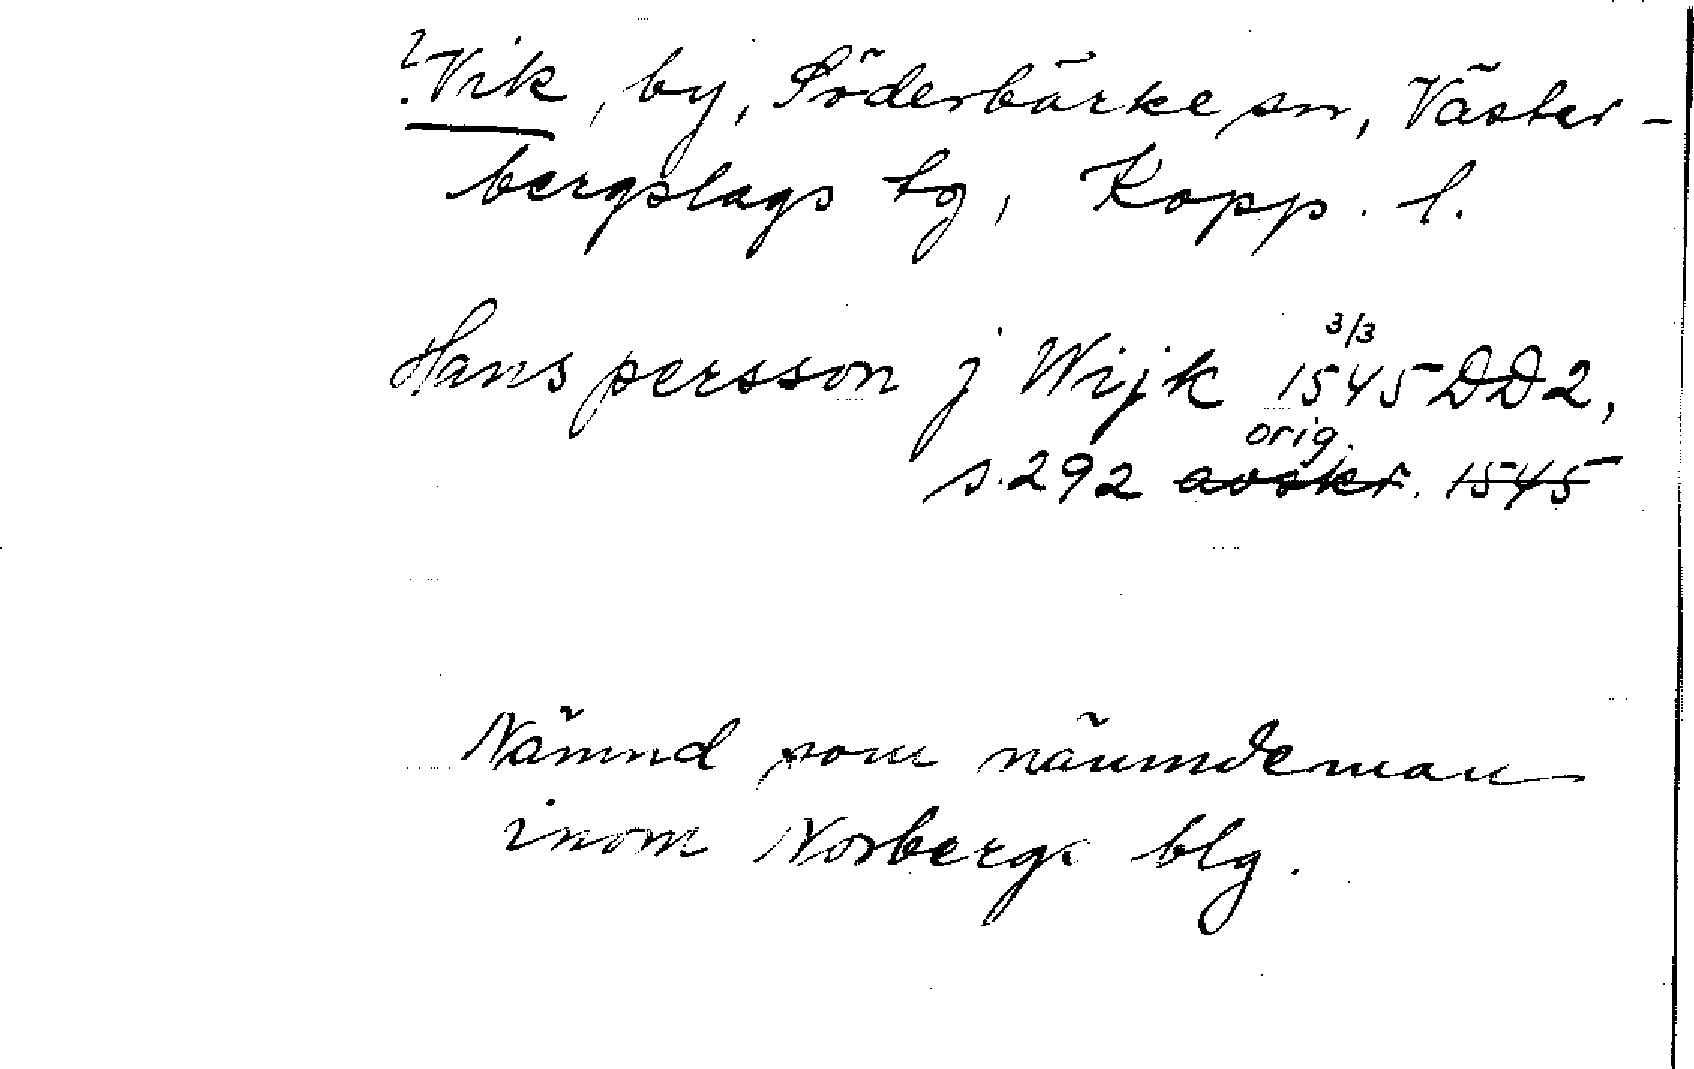 ?Vik, by, Söderbärke sn, Väster-
bergslags tg, Kopp. l.
Hans persson j Wijk 3/3 1545 DD2,
orig.
s. 292 avskr. 1545
Nämnd som nämndeman
inom Norbergs blg.